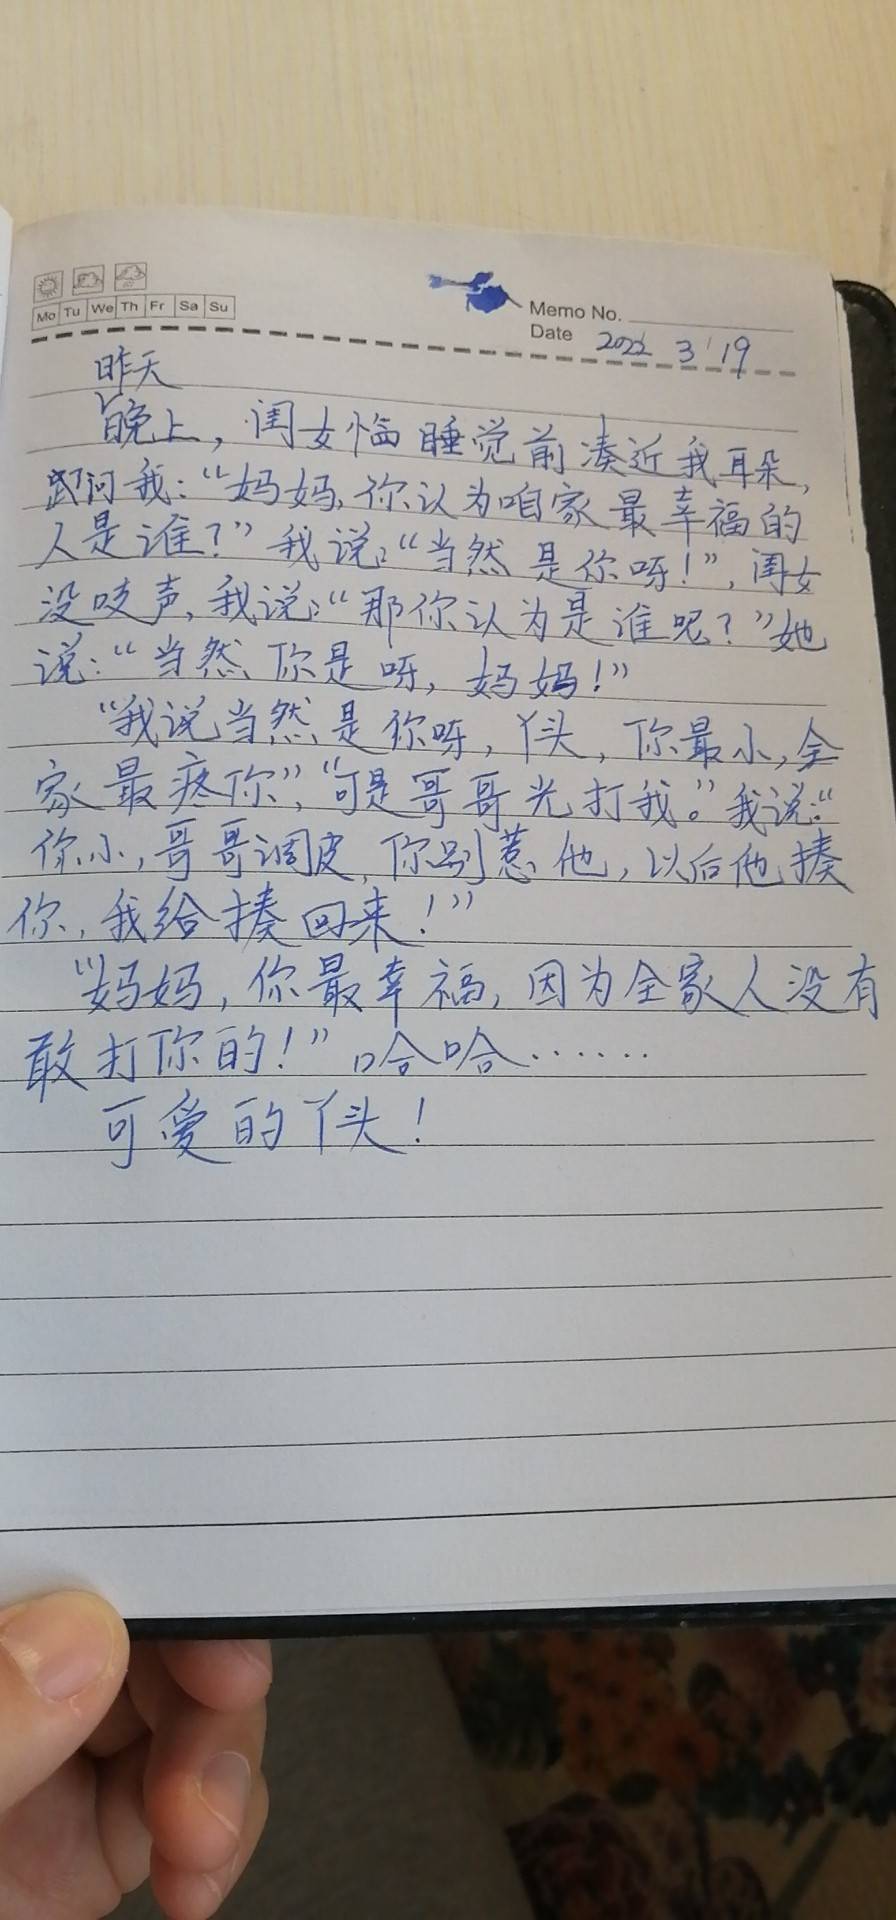 Mo Tu We Th Fr Sa Su
Memo No.
Date 2022 3 19
昨天
晚上，闺女临睡觉前凑近我耳朵，
问我：“妈妈，你认为咱家最幸福的
人是谁？”我说：“当然是你呀！”，闺女
没吱声，我说：“那你认为是谁呢？”她
说：“当然你是呀，妈妈！”
“我说当然是你呀，丫头，你最小，全
家最疼你”，“可是哥哥光打我。”我说：“
你小，哥哥调皮，你别惹他，以后他揍
你，我给揍回来！”
“妈妈，你最幸福，因为全家人没有
敢打你的！”哈哈……
可爱的丫头！